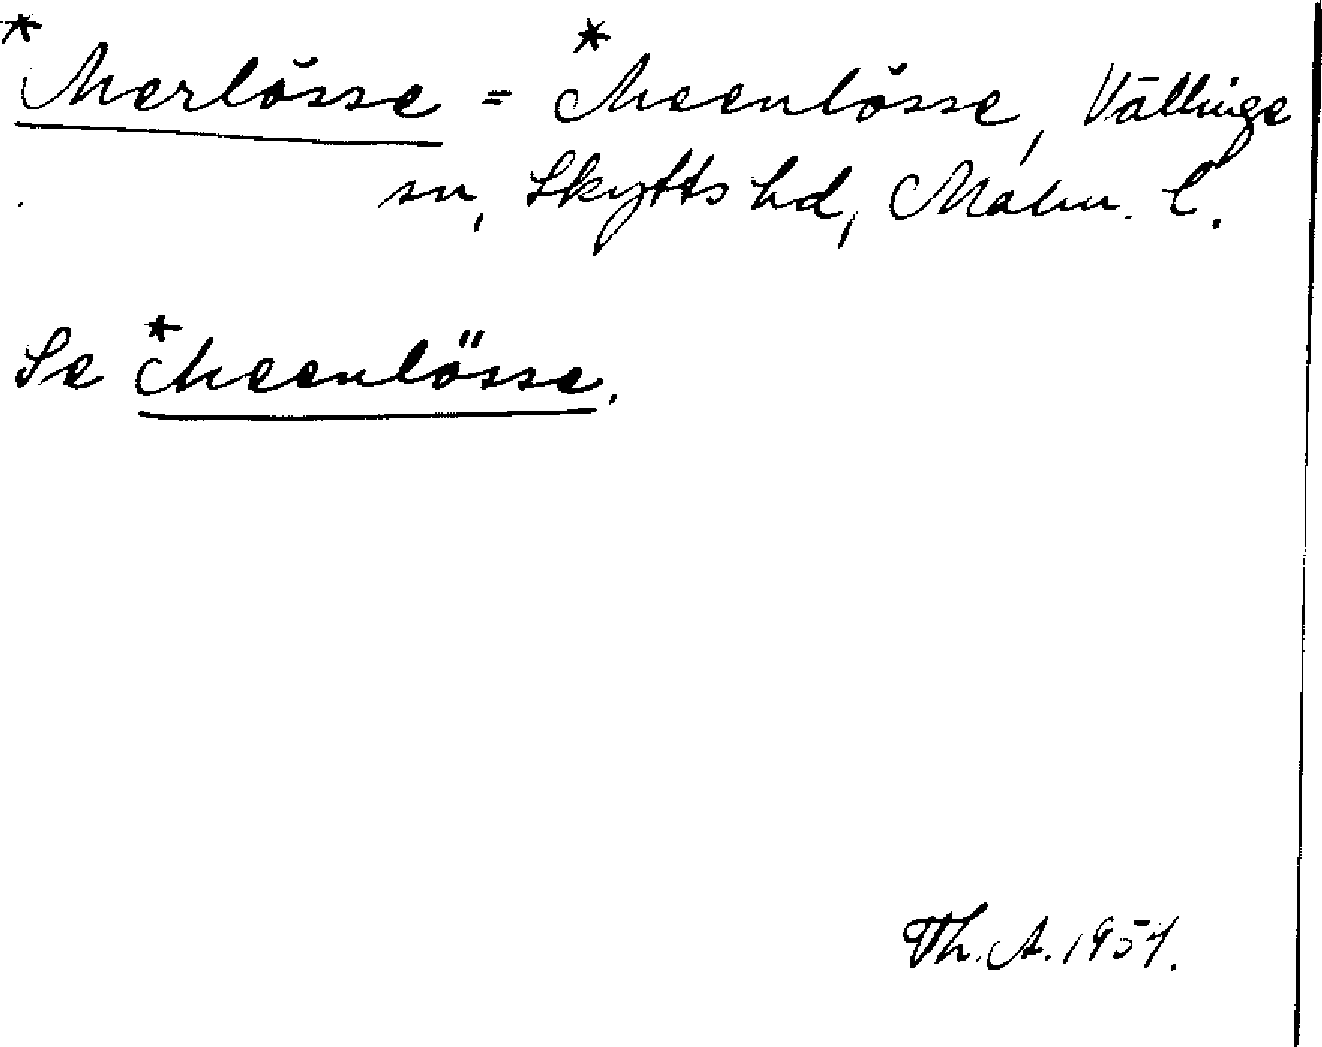 *Merlösse = *Meenlösse, Vällinge
sn, Skytts hd, Malm. l.
Se *Meenlösse.
Th. A. 1954.